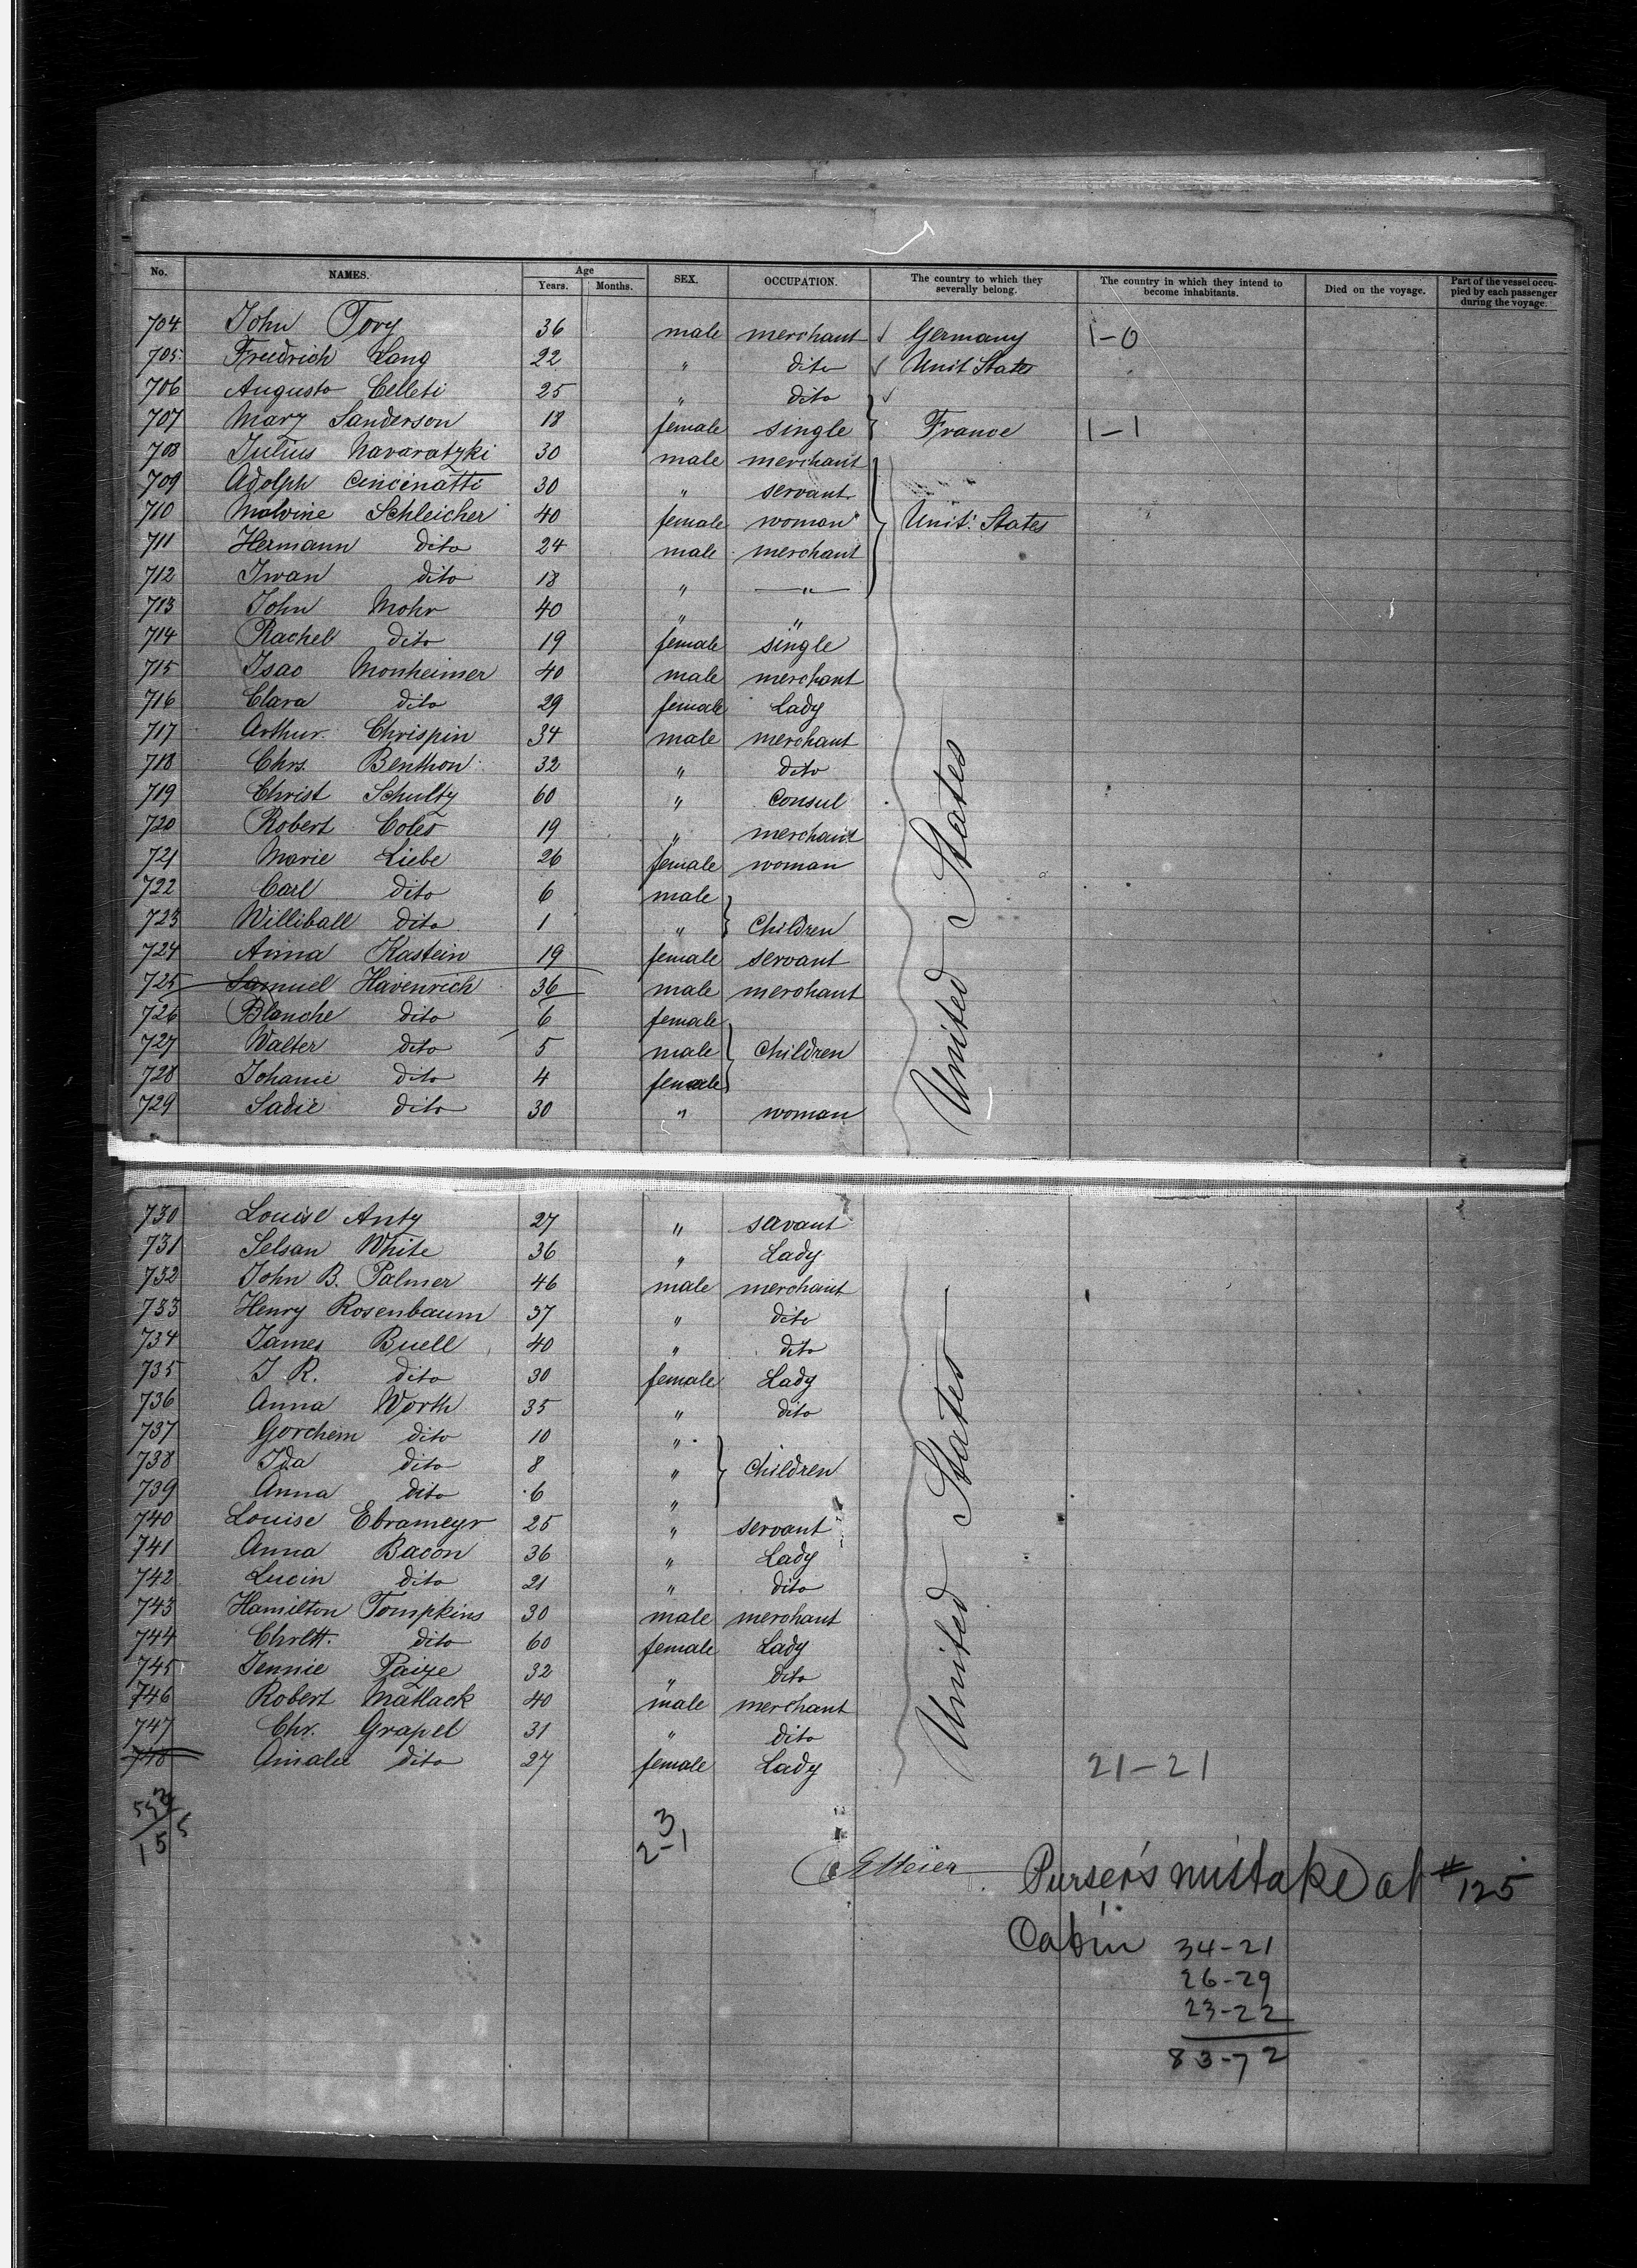 No. NAMES. Age Years. Months. SEX. OCCUPATION. The country to which they severally belong. The country in which they intend to become inhabitants. Died on the voyage. Part of the vessel occupied by each passenger during the voyage.
704 John Tovy 36 male merchant ✓ Germany 1-0
705 Friedrich Lang 22 " dito ✓ Unit States
706 Augusto Celleti 25 " dito ✓
707 Mary Sanderson 18 female single France 1-1
708 Julius Navaratzki 30 male merchant
709 Adolph Cincinatti 30 " servant
710 Malvine Schleicher 40 female woman Unit. States
711 Hermann dito 24 male merchant
712 Iwan dito 18 " "
713 John Mohr 40 " "
714 Rachel dito 19 female single
715 Isac Monheimer 40 male merchant
716 Clara dito 29 female Lady
717 Arthur Chrispin 34 male merchant
718 Chrs. Benthon 32 " dito
719 Christ Schultz 60 " Consul
720 Robert Coles 19 " merchant
721 Marie Liebe 26 female woman
722 Carl dito 6 male
723 Williball dito 1 " Children
724 Anna Kastein 19 female servant
725 Samuel Havenrich 36 male merchant
726 Blanche dito 6 female
727 Walter dito 5 male Children
728 Johanie dito 4 female
729 Sadie dito 30 " woman
United States
730 Louise Anty 27 " servant
731 Selsan White 36 " Lady
732 John B. Palmer 46 male merchant
733 Henry Rosenbaum 37 " dito
734 James Buell 40 " dito
735 J. R. dito 30 female Lady
736 Anna Worth 35 " dito
737 Gorchem dito 10 "
738 Ida dito 8 " Children
739 Anna dito 6 "
740 Louise Ebrameyr 25 " servant
741 Anna Bacon 36 " Lady
742 Lucin dito 21 " dito
743 Hamilton Tompkins 30 male merchant
744 Chrltt. dito 60 female Lady
745 Jennie Paize 32 " dito
746 Robert Matlack 40 male merchant
747 Chr. Grapel 31 " dito
748 Amalie dito 27 female Lady 21-21
United States
3
2-1
155
Purser's mistake at #125
Cabin 34-21
26-29
23-22
83-72